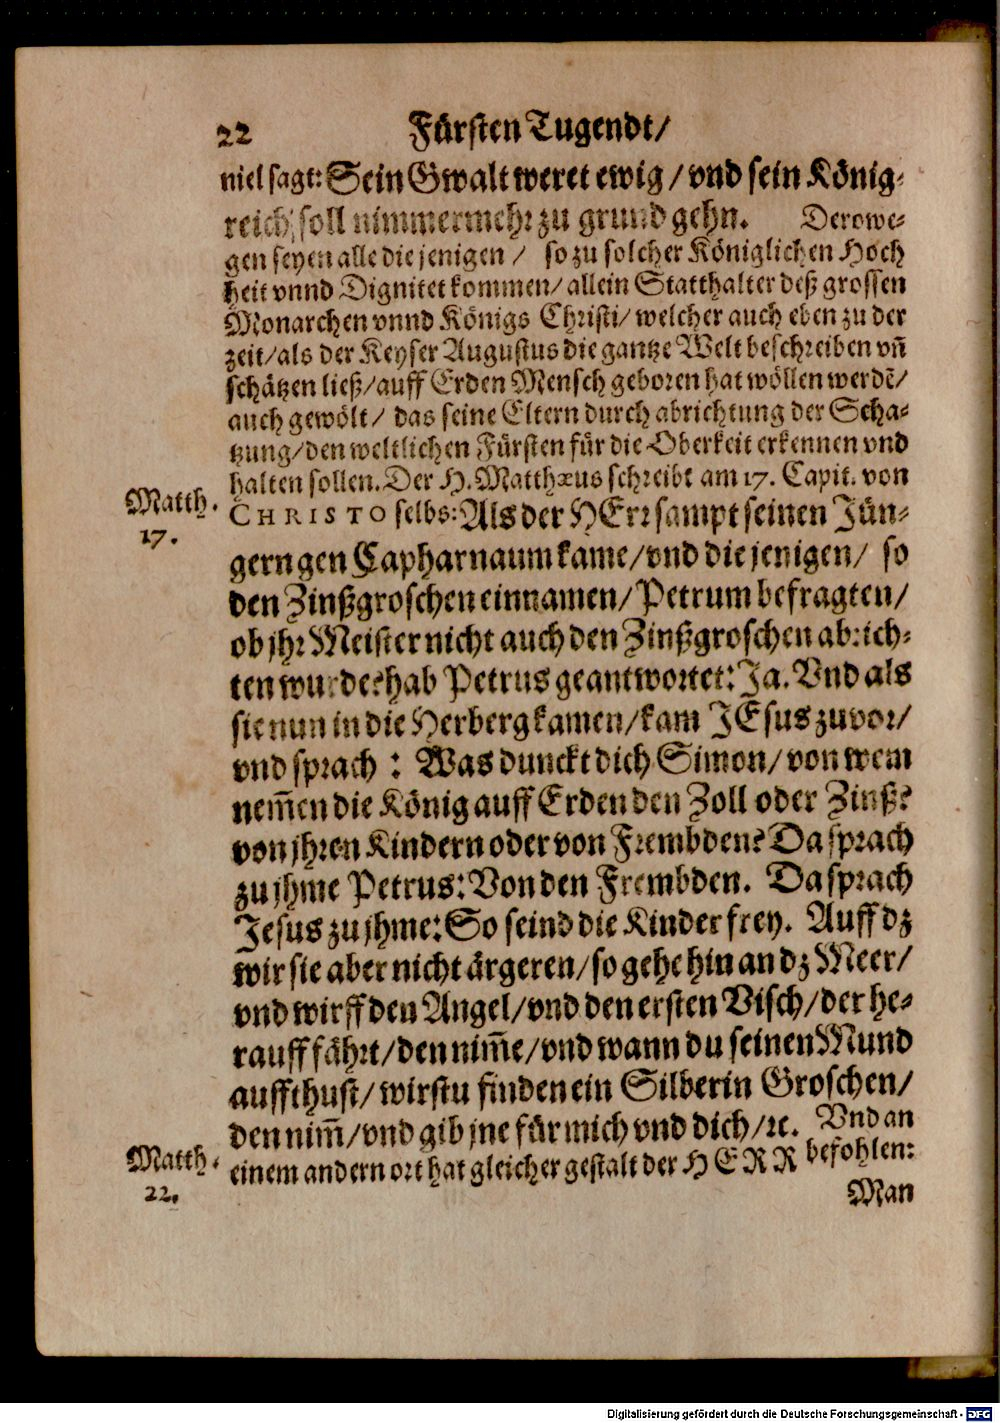 22 Fürsten Tugendt/
niel sagt: Sein Gwalt weret ewig/vnd sein König-
reich soll nimmermehr zu grund gehn. Derowe-
gen seyen alle die jenigen/ so zu solcher Königlichen Hoch
heit vnnd Dignitet kommen/allein Statthalter deß grossen
Monarchen vnnd Königs Christi/welcher auch eben zu der
zeit/als der Keyser Augustus die gantze Welt beschreiben vn̄
schätzen ließ/auff Erden Mensch geboren hat wöllen werdē/
auch gewölt/ das seine Eltern durch abrichtung der Scha-
tzung/den weltlichen Fürsten für die Oberkeit erkennen vnd
halten sollen. Der H. Matthæus schreibt am 17. Capit. von
Matth.
17.
CHRISTO selbs: Als der HErr sampt seinen Jün-
gern gen Capharnaum kame/vnd die jenigen/ so
den Zinßgroschen einnamen/Petrum befragten/
ob jhr Meister nicht auch den Zinßgroschen abrich-
ten wurde? hab Petrus geantwortet: Ja. Vnd als
sie nun in die Herberg kamen/kam JEsus zuvor/
vnd sprach: Was dunckt dich Simon/von wem
nem̄en die König auff Erden den Zoll oder Zinß?
von jhren Kindern oder von Frembden? Da sprach
zu jhme Petrus: Von den Frembden. Da sprach
Jesus zu jhme: So seind die Kinder frey. Auff dz
wir sie aber nicht ärgeren/so gehe hin an dz Meer/
vnd wirff den Angel/vnd den ersten Visch/der he-
rauff fährt/den nim̄e/vnd wann du seinen Mund
auffthust/wirstu finden ein Silberin Groschen/
den nim̄/vnd gib jne für mich vnd dich/ꝛc. Vnd an
Matth.
22.
einem andern ort hat gleicher gestalt der HERR befohlen:
Man
Digitalisierung gefördert durch die Deutsche Forschungsgemeinschaft - DFG